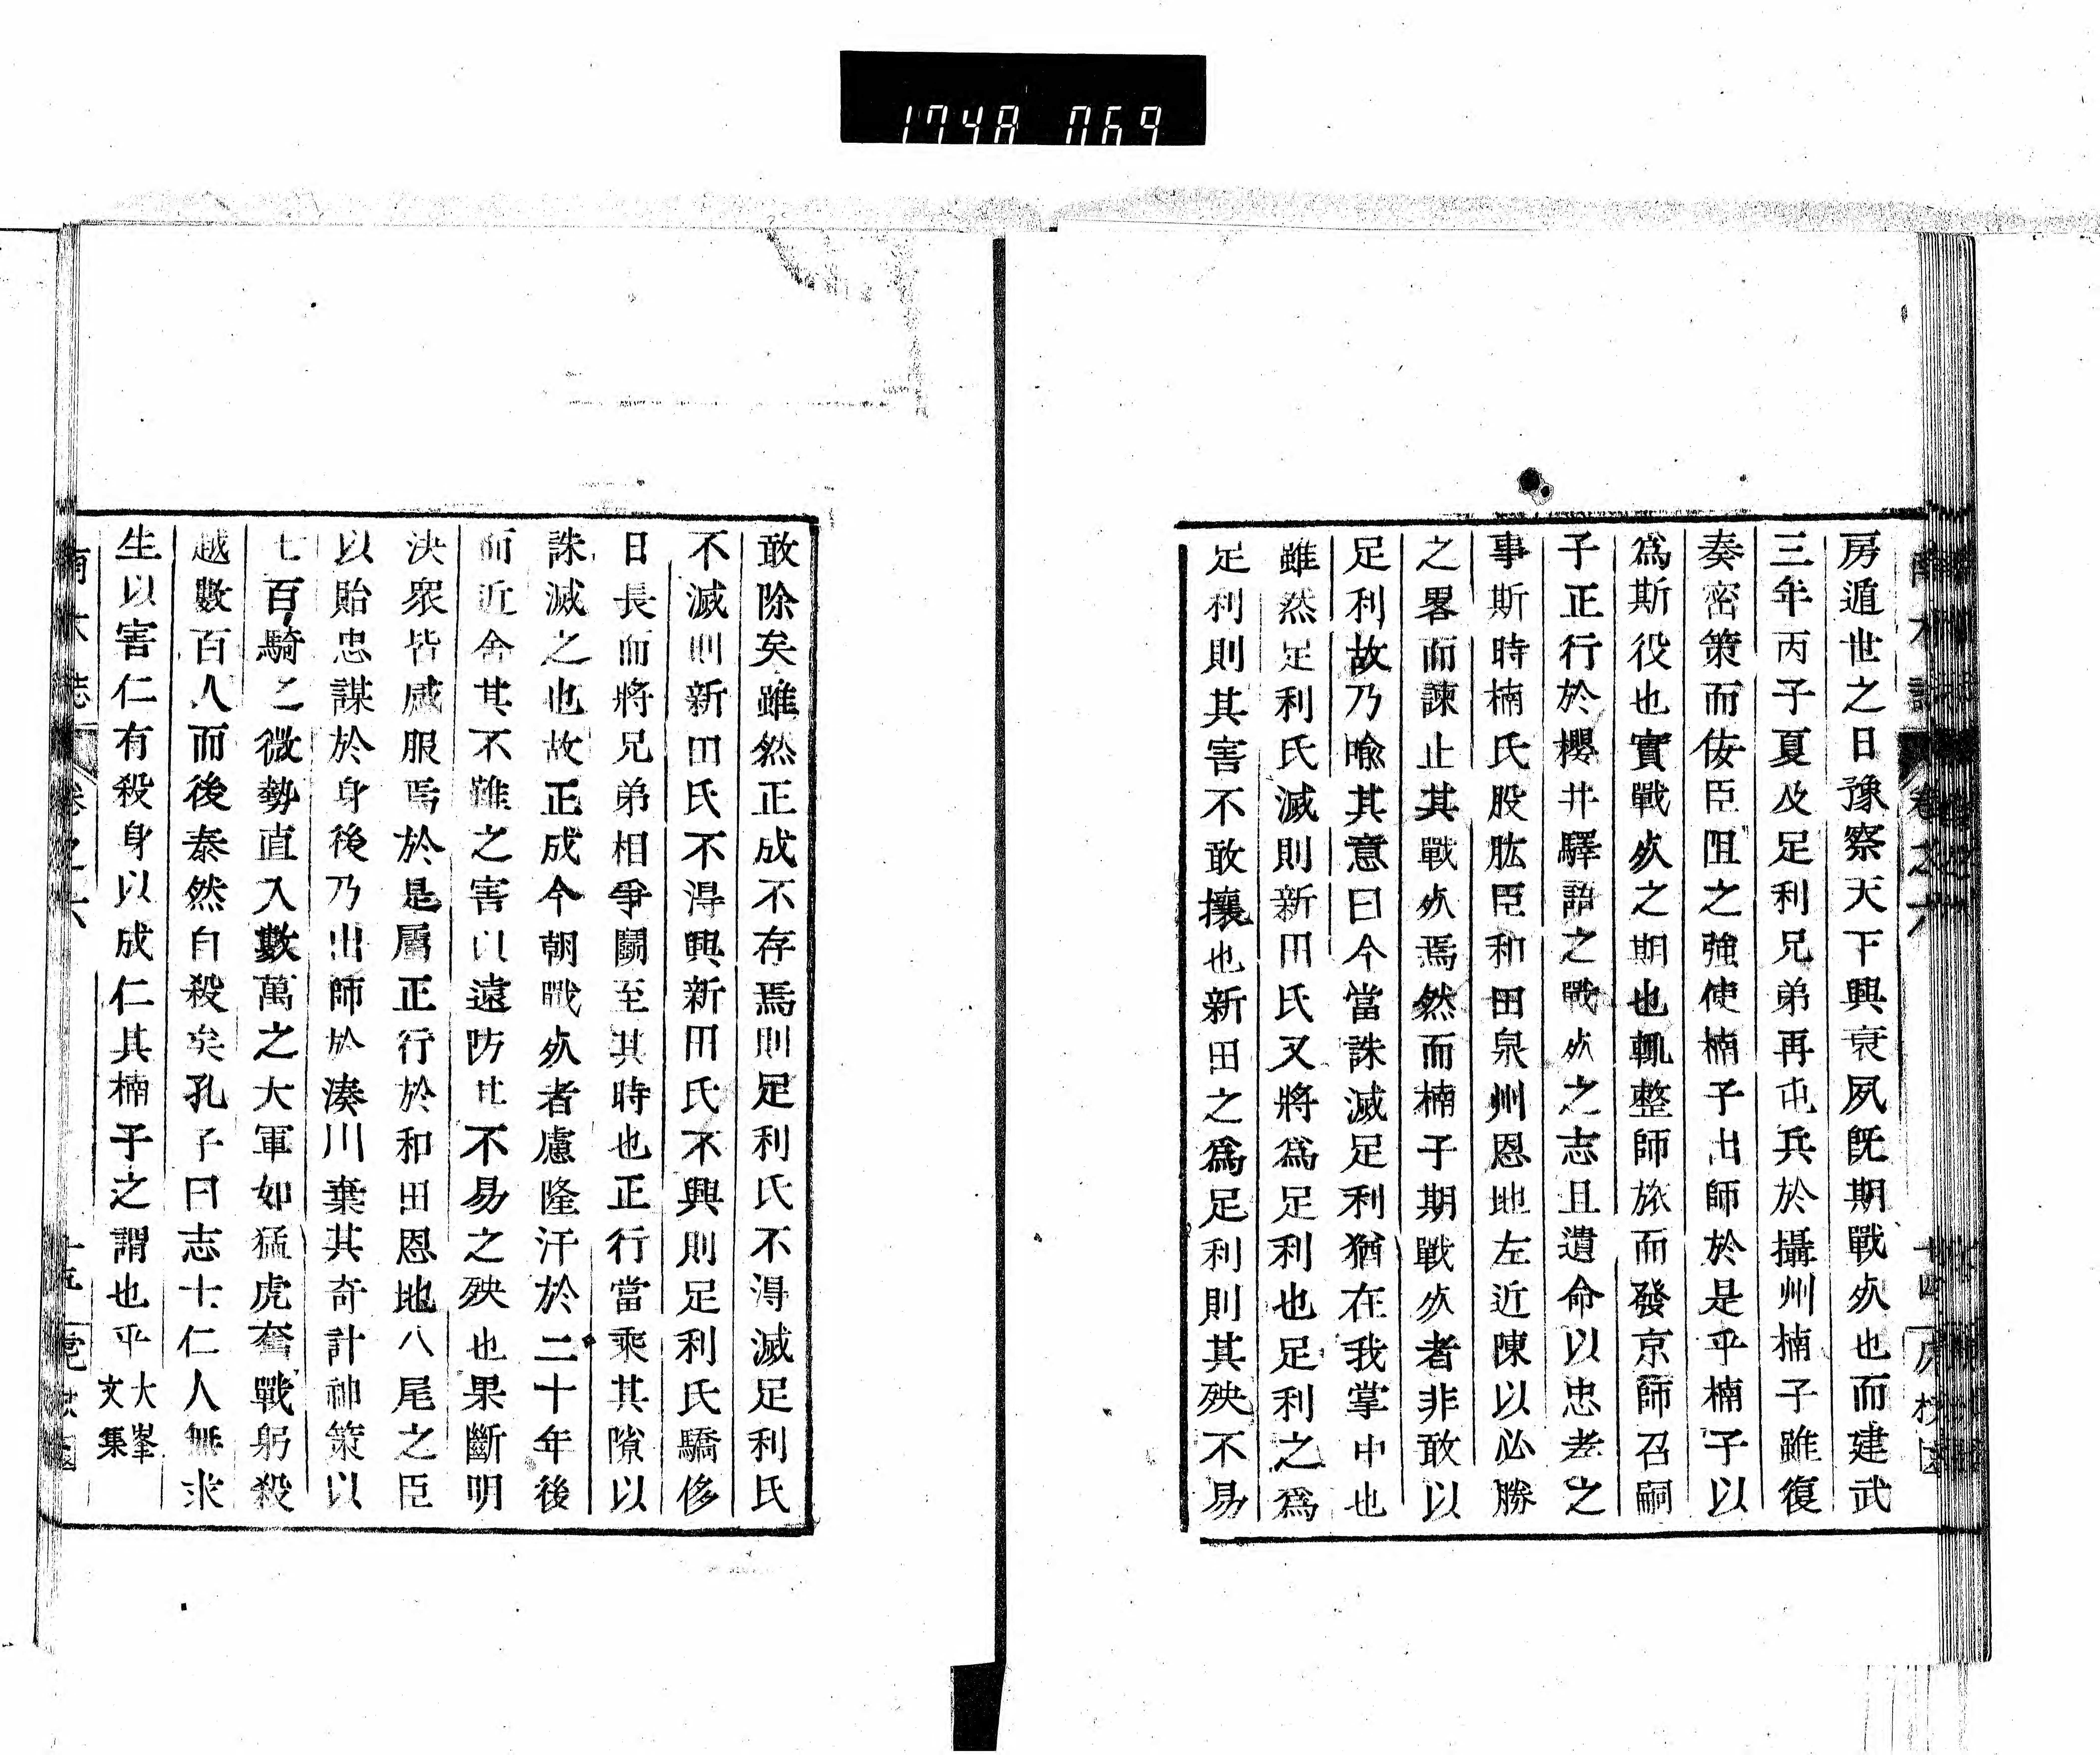 1748 069
房遁世之日豫察天下興衰夙既期戰死也而建武
三年丙子夏及足利兄弟再屯兵於攝州楠子雖復
奏密策而佞臣阻之強使楠子出師於是乎楠子以
爲斯役也實戰死之期也輒整師旅而發京師召嗣
子正行於櫻井驛語之戰死之志且遺命以忠孝之
事斯時楠氏股肱臣和田泉州恩地左近陳以必勝
之畧而諫止其戰死焉然而楠子期戰死者非敢以
足利故乃喩其意曰今當誅滅足利猶在我掌中也
雖然足利氏滅則新田氏又將爲足利也足利之爲
足利則其害不敢攘也新田之爲足利則其殃不易
敢除矣雖然正成不存焉則足利氏不得滅足利氏
不滅則新田氏不得興新田氏不興則足利氏驕侈
日長而將兄弟相爭鬪至其時也正行當乘其隙以
誅滅之也故正成今朝戰死者慮隆汗於二十年後
而近舍其不難之害以遠防其不易之殃也果斷明
決衆皆感服焉於是屬正行於和田恩地八尾之臣
以貽忠謀於身後乃出師於湊川棄其奇計神策以
七百騎之微勢直入數萬之大軍如猛虎奮戰躬殺
越數百人而後泰然自殺矣孔子曰志士仁人無求
生以害仁有殺身以成仁其楠子之謂也乎 大峯文集
卷之六